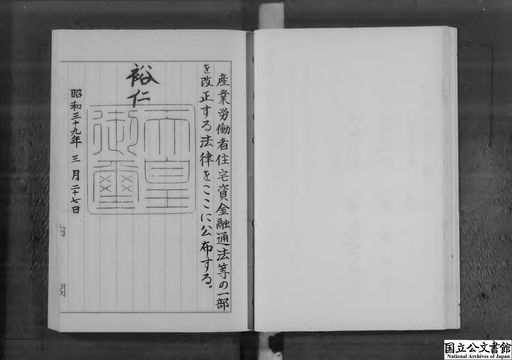 産業労働者住宅資金融通法等の一部
を改正する法律をここに公布する。
裕仁
天皇
御璽
昭和三十九年三月二十七日
国立公文書館
National Archives of Japan